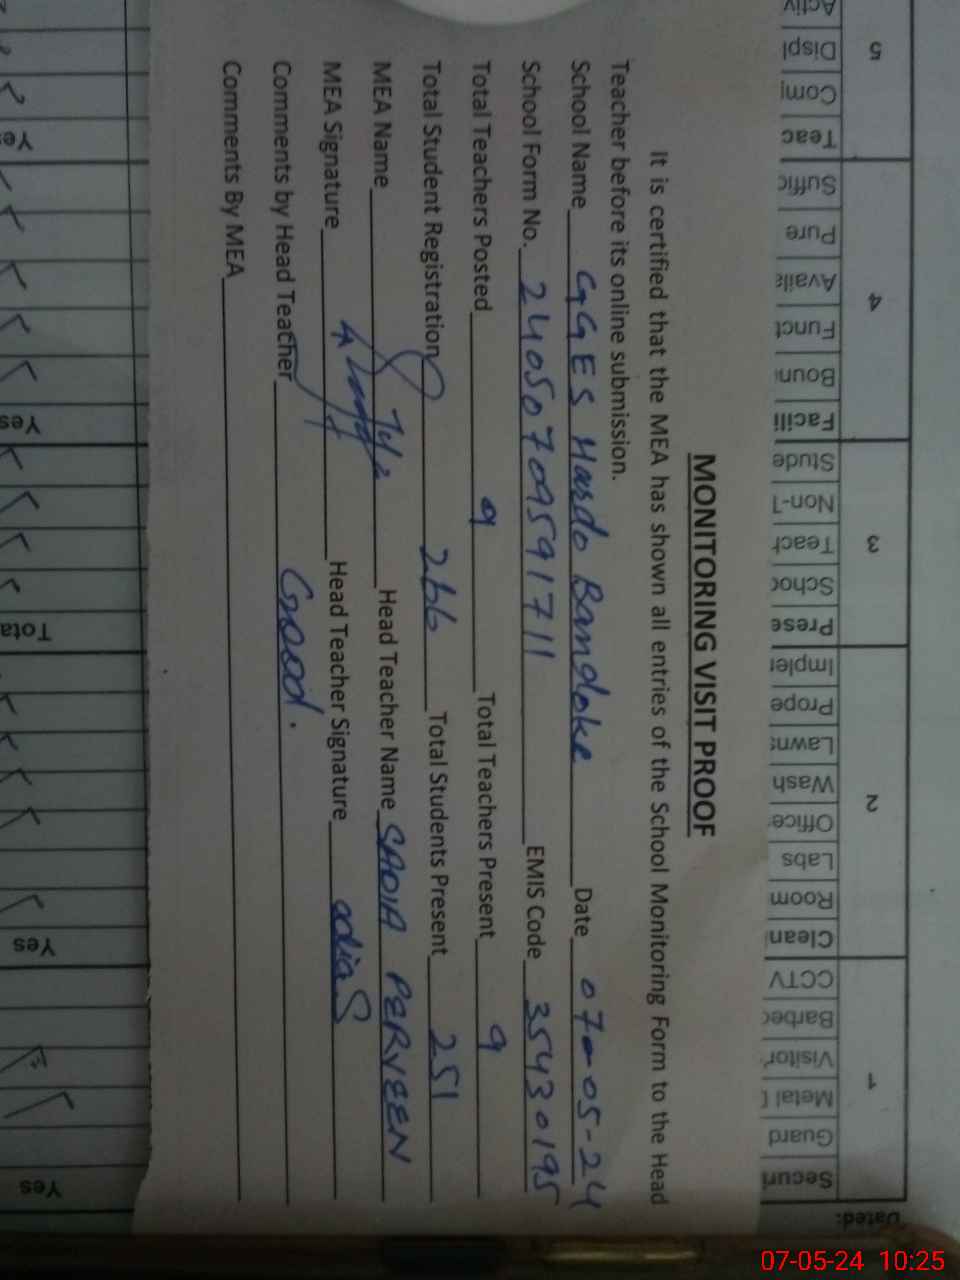 MONITORING VISIT PROOF
It is certified that the MEA has shown all entries of the School Monitoring Form to the Head
Teacher before its online submission.
School Name GGES Hardo Bandoke Date 07-05-24
School Form No. 24050709591711 EMIS Code 35430195
Total Teachers Posted 9 Total Teachers Present 9
Total Student Registration 266 Total Students Present 251
MEA Name Head Teacher Name SADIA PERVEEN
MEA Signature Head Teacher Signature
Comments by Head Teacher Good.
Comments By MEA
Dated:
1
Securi
Guard
Metal
Visitor
Barbed
CCTV
2
Clean
Room
Labs
Office
Wash
Lawns
Prope
Implem
3
Prese
Schoo
Teach
Non-T
Stude
4
Facili
Boun
Funct
Availa
Pure
Suffic
5
Teac
Comi
Displ
Activ
Yes
Yes
Tota
Yes
Yes
07-05-24 10:25